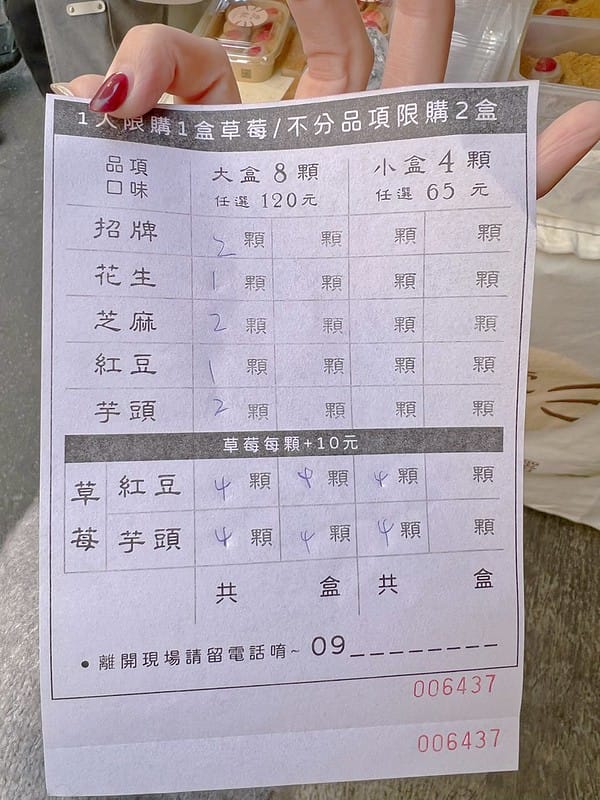 1人限購1盒草莓/不分品項限購2盒
品項 口味 大盒 8 顆 任選 120元 小盒 4 顆 任選 65 元
招牌 2 顆 顆 顆 顆
花生 1 顆 顆 顆 顆
芝麻 2 顆 顆 顆 顆
紅豆 1 顆 顆 顆 顆
芋頭 2 顆 顆 顆 顆
草莓每顆+10元
草莓 紅豆 4 顆 4 顆 4 顆 顆
芋頭 4 顆 4 顆 4 顆 顆
共 盒 共 盒
• 離開現場請留電話唷~ 09_ _ _ _ _ _ _ _
006437
006437